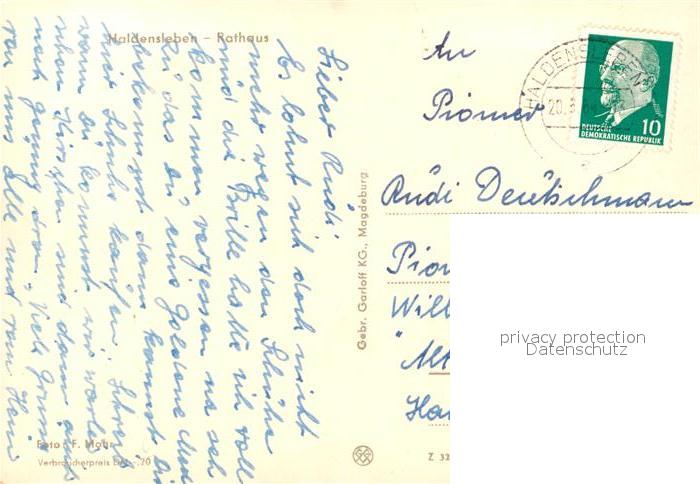 Haldensleben – Rathaus
Lieber Rudi
Es lohnt sich doch nicht
mehr wegen der Schuhe
und die Brille hatte ich voll
kommen vergessen na seh
zu das du eine Goldene Med
bekommst dann kannst Di
mir Schuhe kaufen. Schreib
wann du kommst wir warten
schon Kirschen sind dann auch
noch genug dran. Viele Grüsse
von uns Alle und von Heim
Foto: F. Mohr
Verbraucherpreis DM -,20
Gebr. Garloff KG., Magdeburg
Z 32
An
Pionier
Rudi Deutschmann
Pion
Will
"Alt
Ha
HALDENSLEBEN
20.
10
DEUTSCHE
DEMOKRATISCHE REPUBLIK
privacy protection
Datenschutz